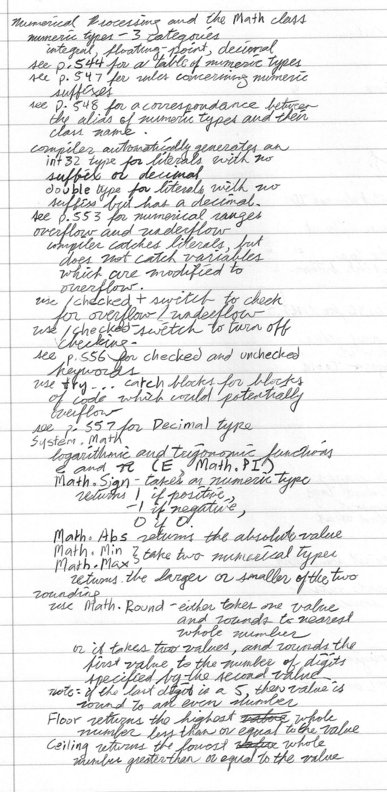 Numerical Processing and the Math class
numeric types - 3 categories
integral, floating-point, decimal
see p. 544 for a table of numeric types
see p. 547 for rules concerning numeric
suffixes
see p. 548 for a correspondance between
the alias of numeric types and their
class name.
compiler automatically generates an
int32 type for literals with no
suffix or decimal
double type for literals with no
suffix but has a decimal.
see p. 553 for numerical ranges
overflow and underflow
compiler catches literals, but
does not catch variables
which are modified to
overflow.
use /checked+ switch to check
for overflow/underflow
use /checked- switch to turn off
checking.
see p. 556 for checked and unchecked
keywords
use try... catch blocks for blocks
of code which could potentially
overflow
see p. 557 for Decimal type
System.Math
logarithmic and trigonomic functions
e and π (E, Math.PI)
Math.Sign - takes a numeric type
returns 1 if positive,
-1 if negative,
0 if 0.
Math.Abs returns the absolute value
Math.Min } take two numerical types
Math.Max
returns the larger or smaller of the two
rounding
use Math.Round - either takes one value
and rounds to nearest
whole number
or it takes two values, and rounds the
first value, to the number of digits
specified by the second value
note: if the last digit is a 5, then value is
round to an even number
Floor returns the highest whole
number less than or equal to the value
Ceiling returns the lowest whole
number greater than or equal to the value